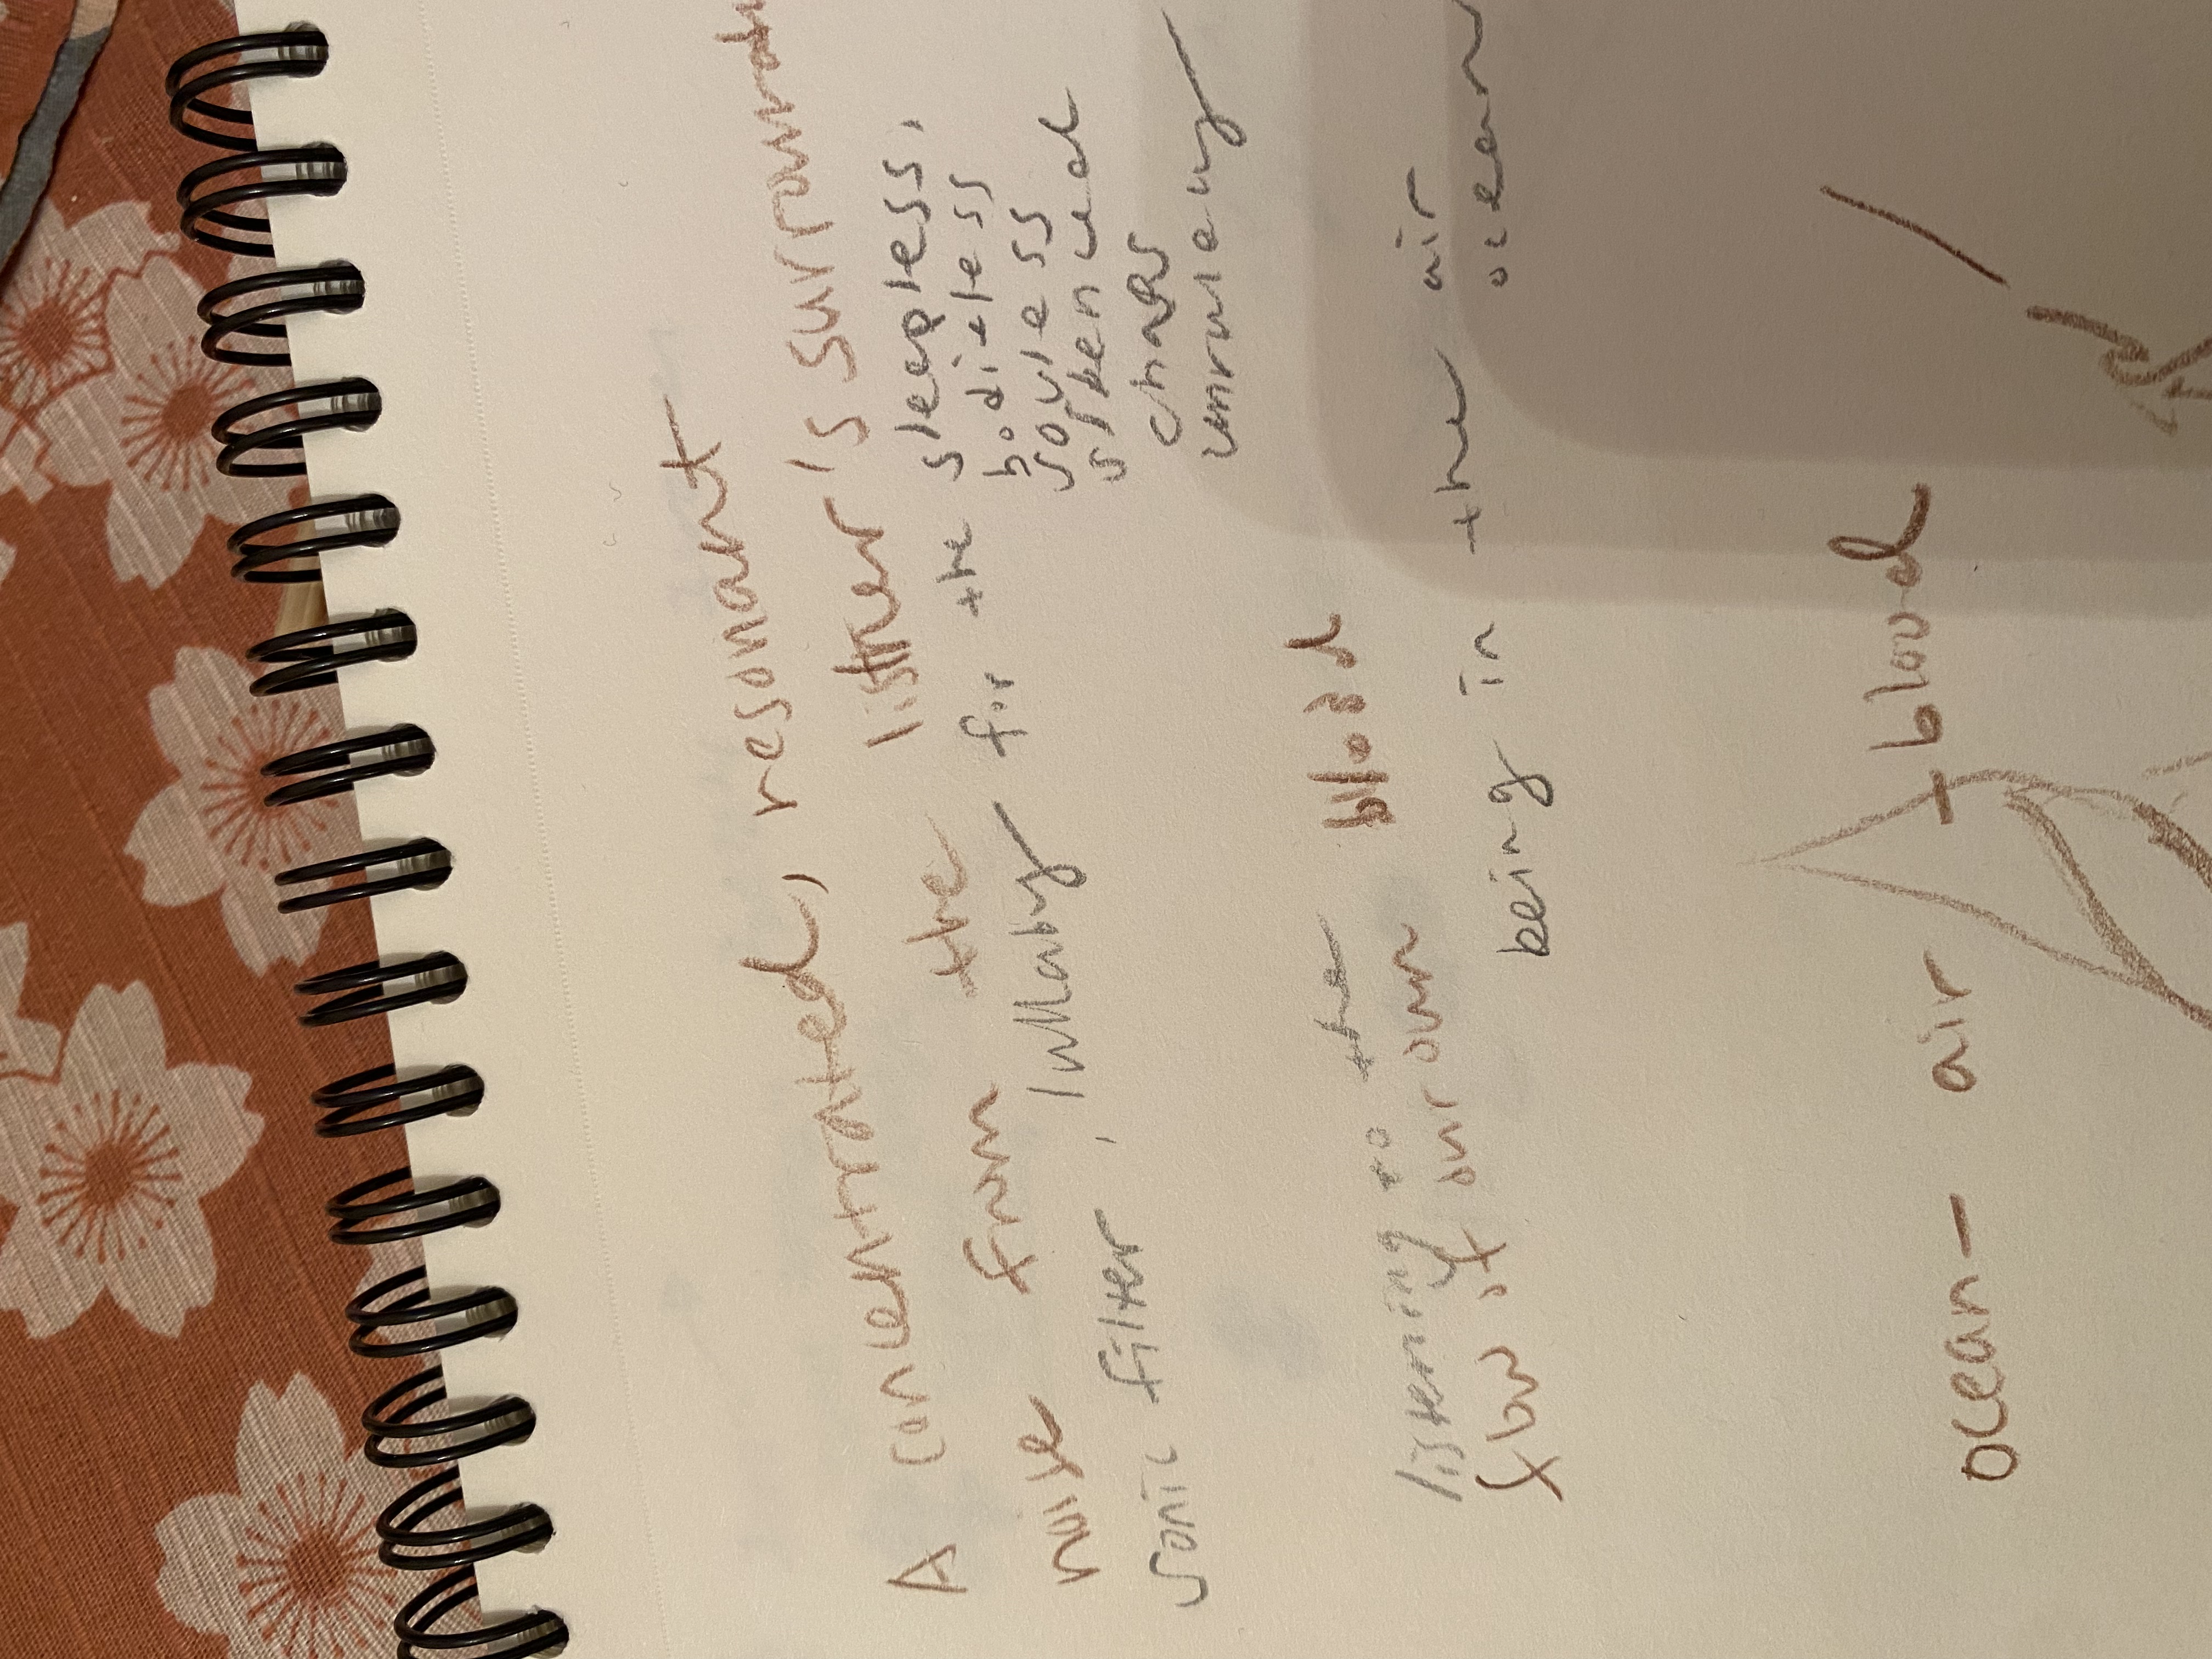 A concentrated, resonant
noise from the listner's
sonic filter, lullaby for the sleepless,
bodieless
chaos
listening to the blood
flow of our own
being in the air
ocean
ocean - air - blood